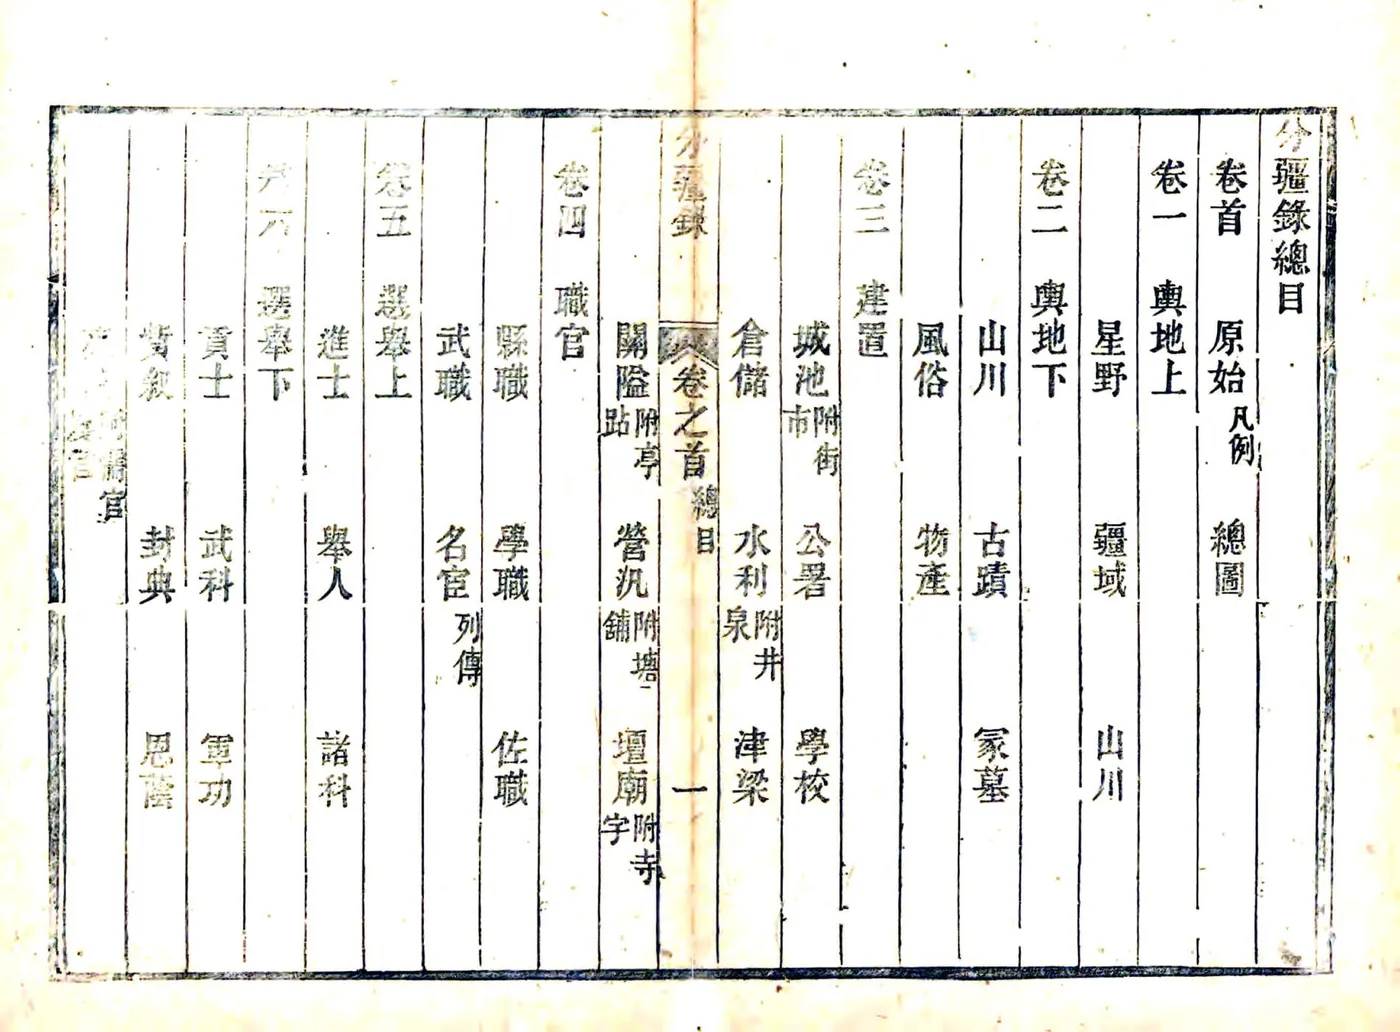 分疆錄總目
卷首 原始 凡例 總圖
卷一 輿地上
星野 疆域 山川
卷二 輿地下
山川 古蹟 冢墓
風俗 物產
卷三 建置
城池 附街市 公署 學校
倉儲 水利 附井泉 津梁
分疆錄 卷之首 總目 一
關隘 附亭跕 營汛 附塘舖 壇廟 附寺宇
卷四 職官
縣職 學職 佐職
武職 名宦 列傳
卷五 選舉上
進士 舉人 諸科
卷六 選舉下
貢士 武科 軍功
貲敘 封典 恩蔭
官